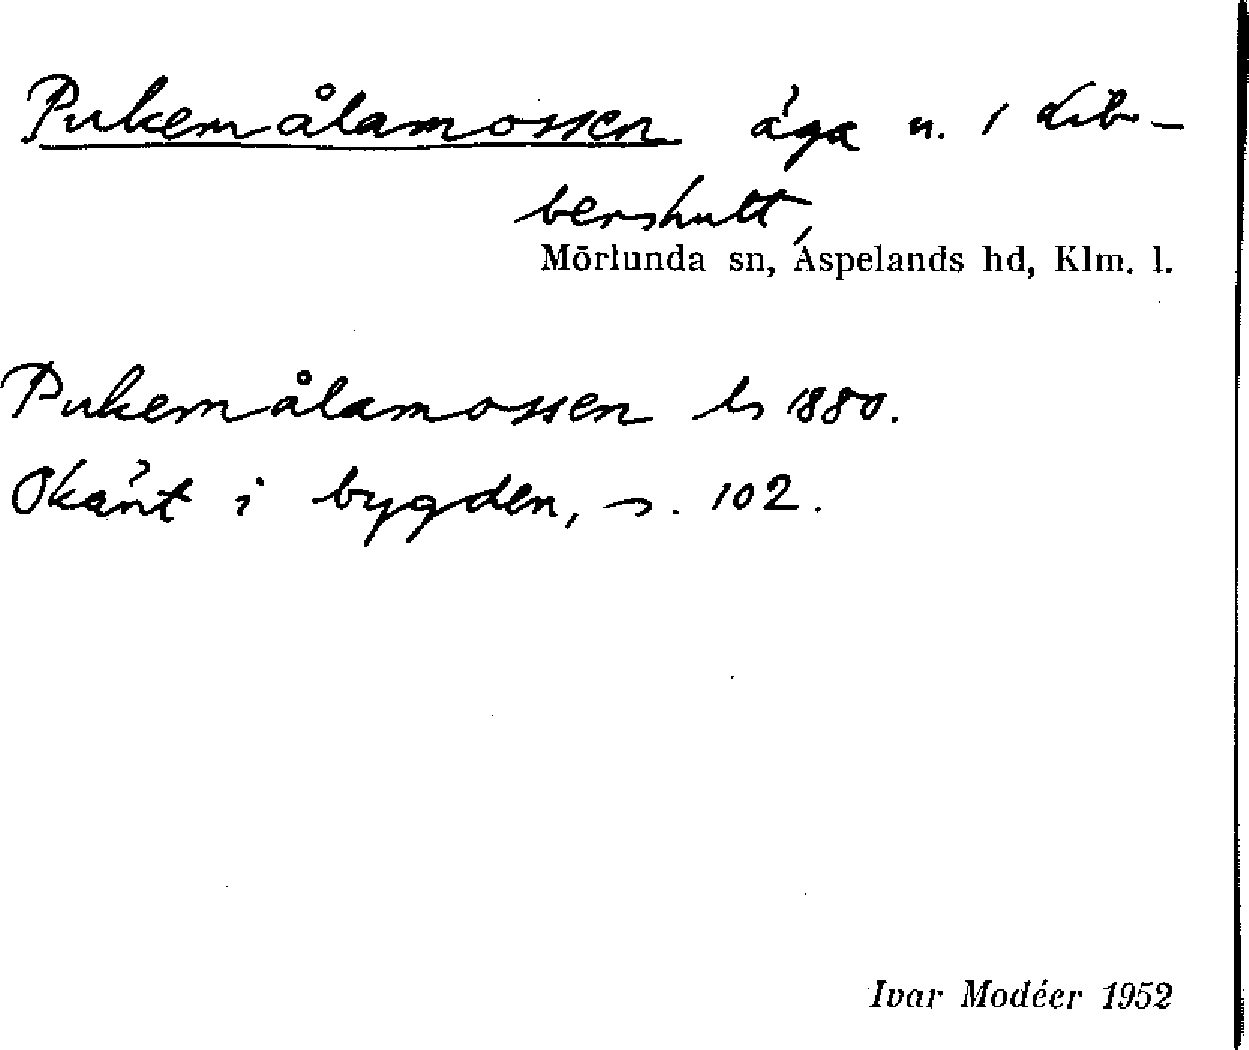 Pukemålamossen äga u. 1 Lib-
bershult,
Mörlunda sn, Aspelands hd, Klm. l.
Pukemålamossen ls 1880.
Okänt i bygden, s. 102.
Ivar Modéer 1952